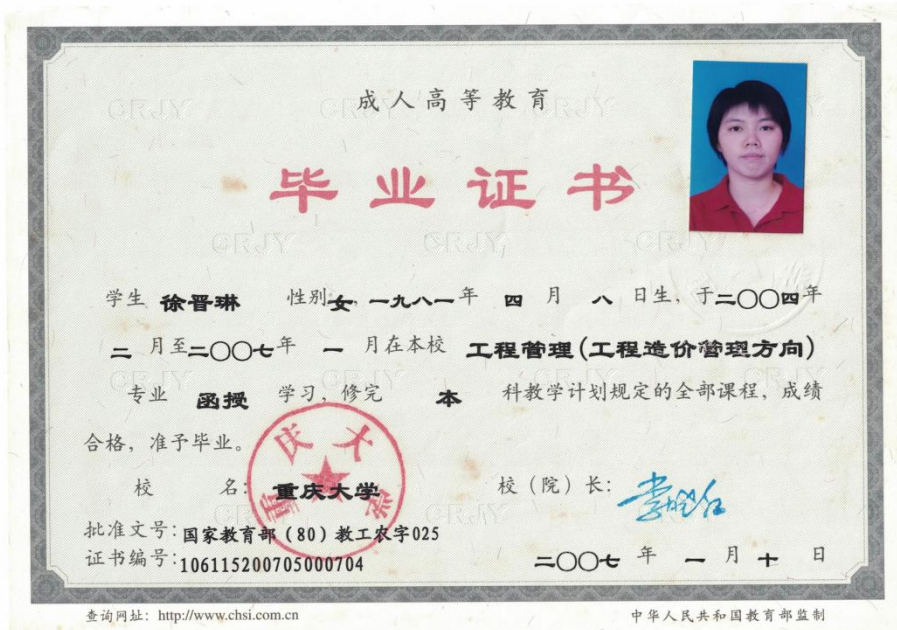 成人高等教育
毕业证书
学生 徐晋琳 性别 女, 一九八一年 四 月 八 日生, 于二〇〇四年
二 月至二〇〇七年 一 月在本校 工程管理(工程造价管理方向)
专业 函授 学习, 修完 本 科教学计划规定的全部课程, 成绩
合格, 准予毕业。
校 名: 重庆大学 校（院）长:
批准文号: 国家教育部（80）教工农字025
证书编号: 106115200705000704 二〇〇七 年 一 月 十 日
查询网址: http://www.chsi.com.cn 中华人民共和国教育部监制
重庆大学
CRJY CRJY CRJY
CRJY CRJY CRJY
CRJY CRJY
CRJY